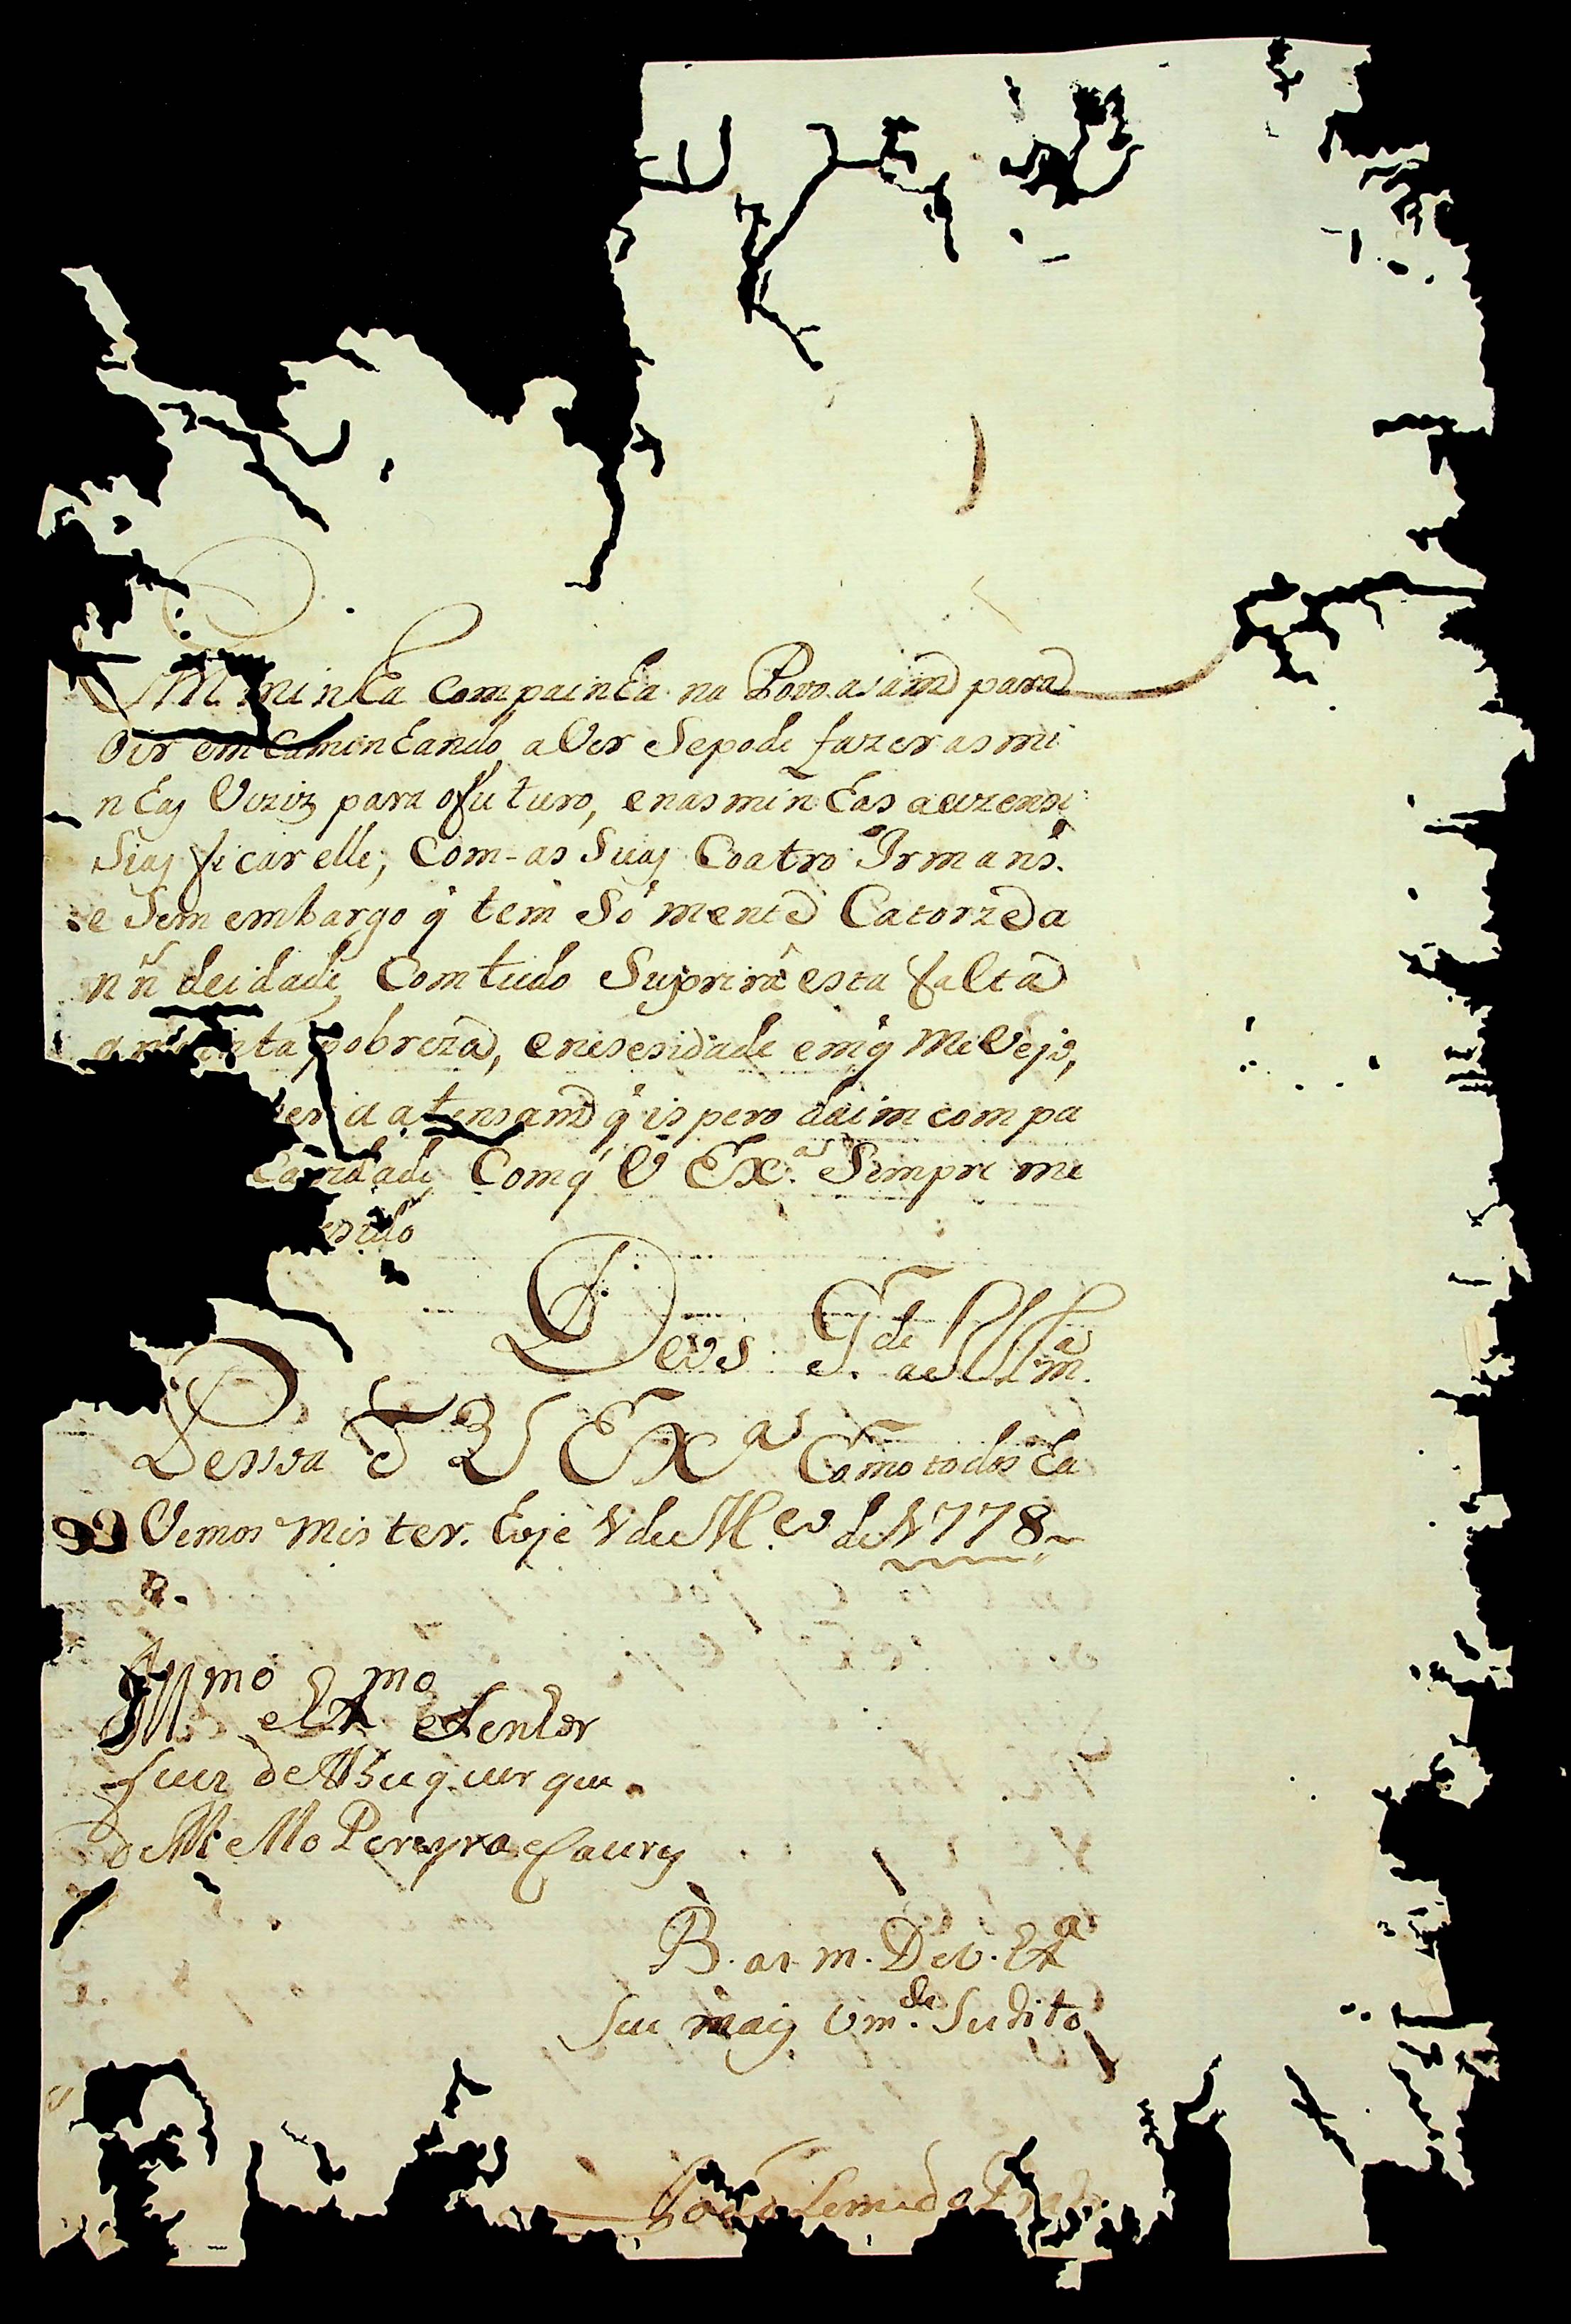 Em minha Compainha na Povoasam para
Oir emCaminhando aVer Sepode fazer as mi
nhas Vizis para ofuturo, enas minhas auzensi
Sias ficar elle, Com-as Suas Coatro Irmans.
e Sem embargo q̃ tem Só mente Catorze a
nñ deidade Comtudo Suprirá esta falta
a minha pobreza, enesesidade emq̃ MeVejo,
atensam q̃ ispero daim compa
Caridade Comq̃ V Exᵃˢ. Sempre me

Deos Gᵈᵉ. aelllᵐᵃ.
Pessoa D V Exᵃˢ Como todos ha
Vemos mister. hoje 1 de M.ᶜᵒ de 1778

Illᵐᵒ e Exᵐᵒ Senhor
Luiz deAlbuquerque
deMello Pereyra eCaurys
B. as m. DeV. Exᵃ
Seu mais Umᵈᵉ. Sudito
João Leme do Prado